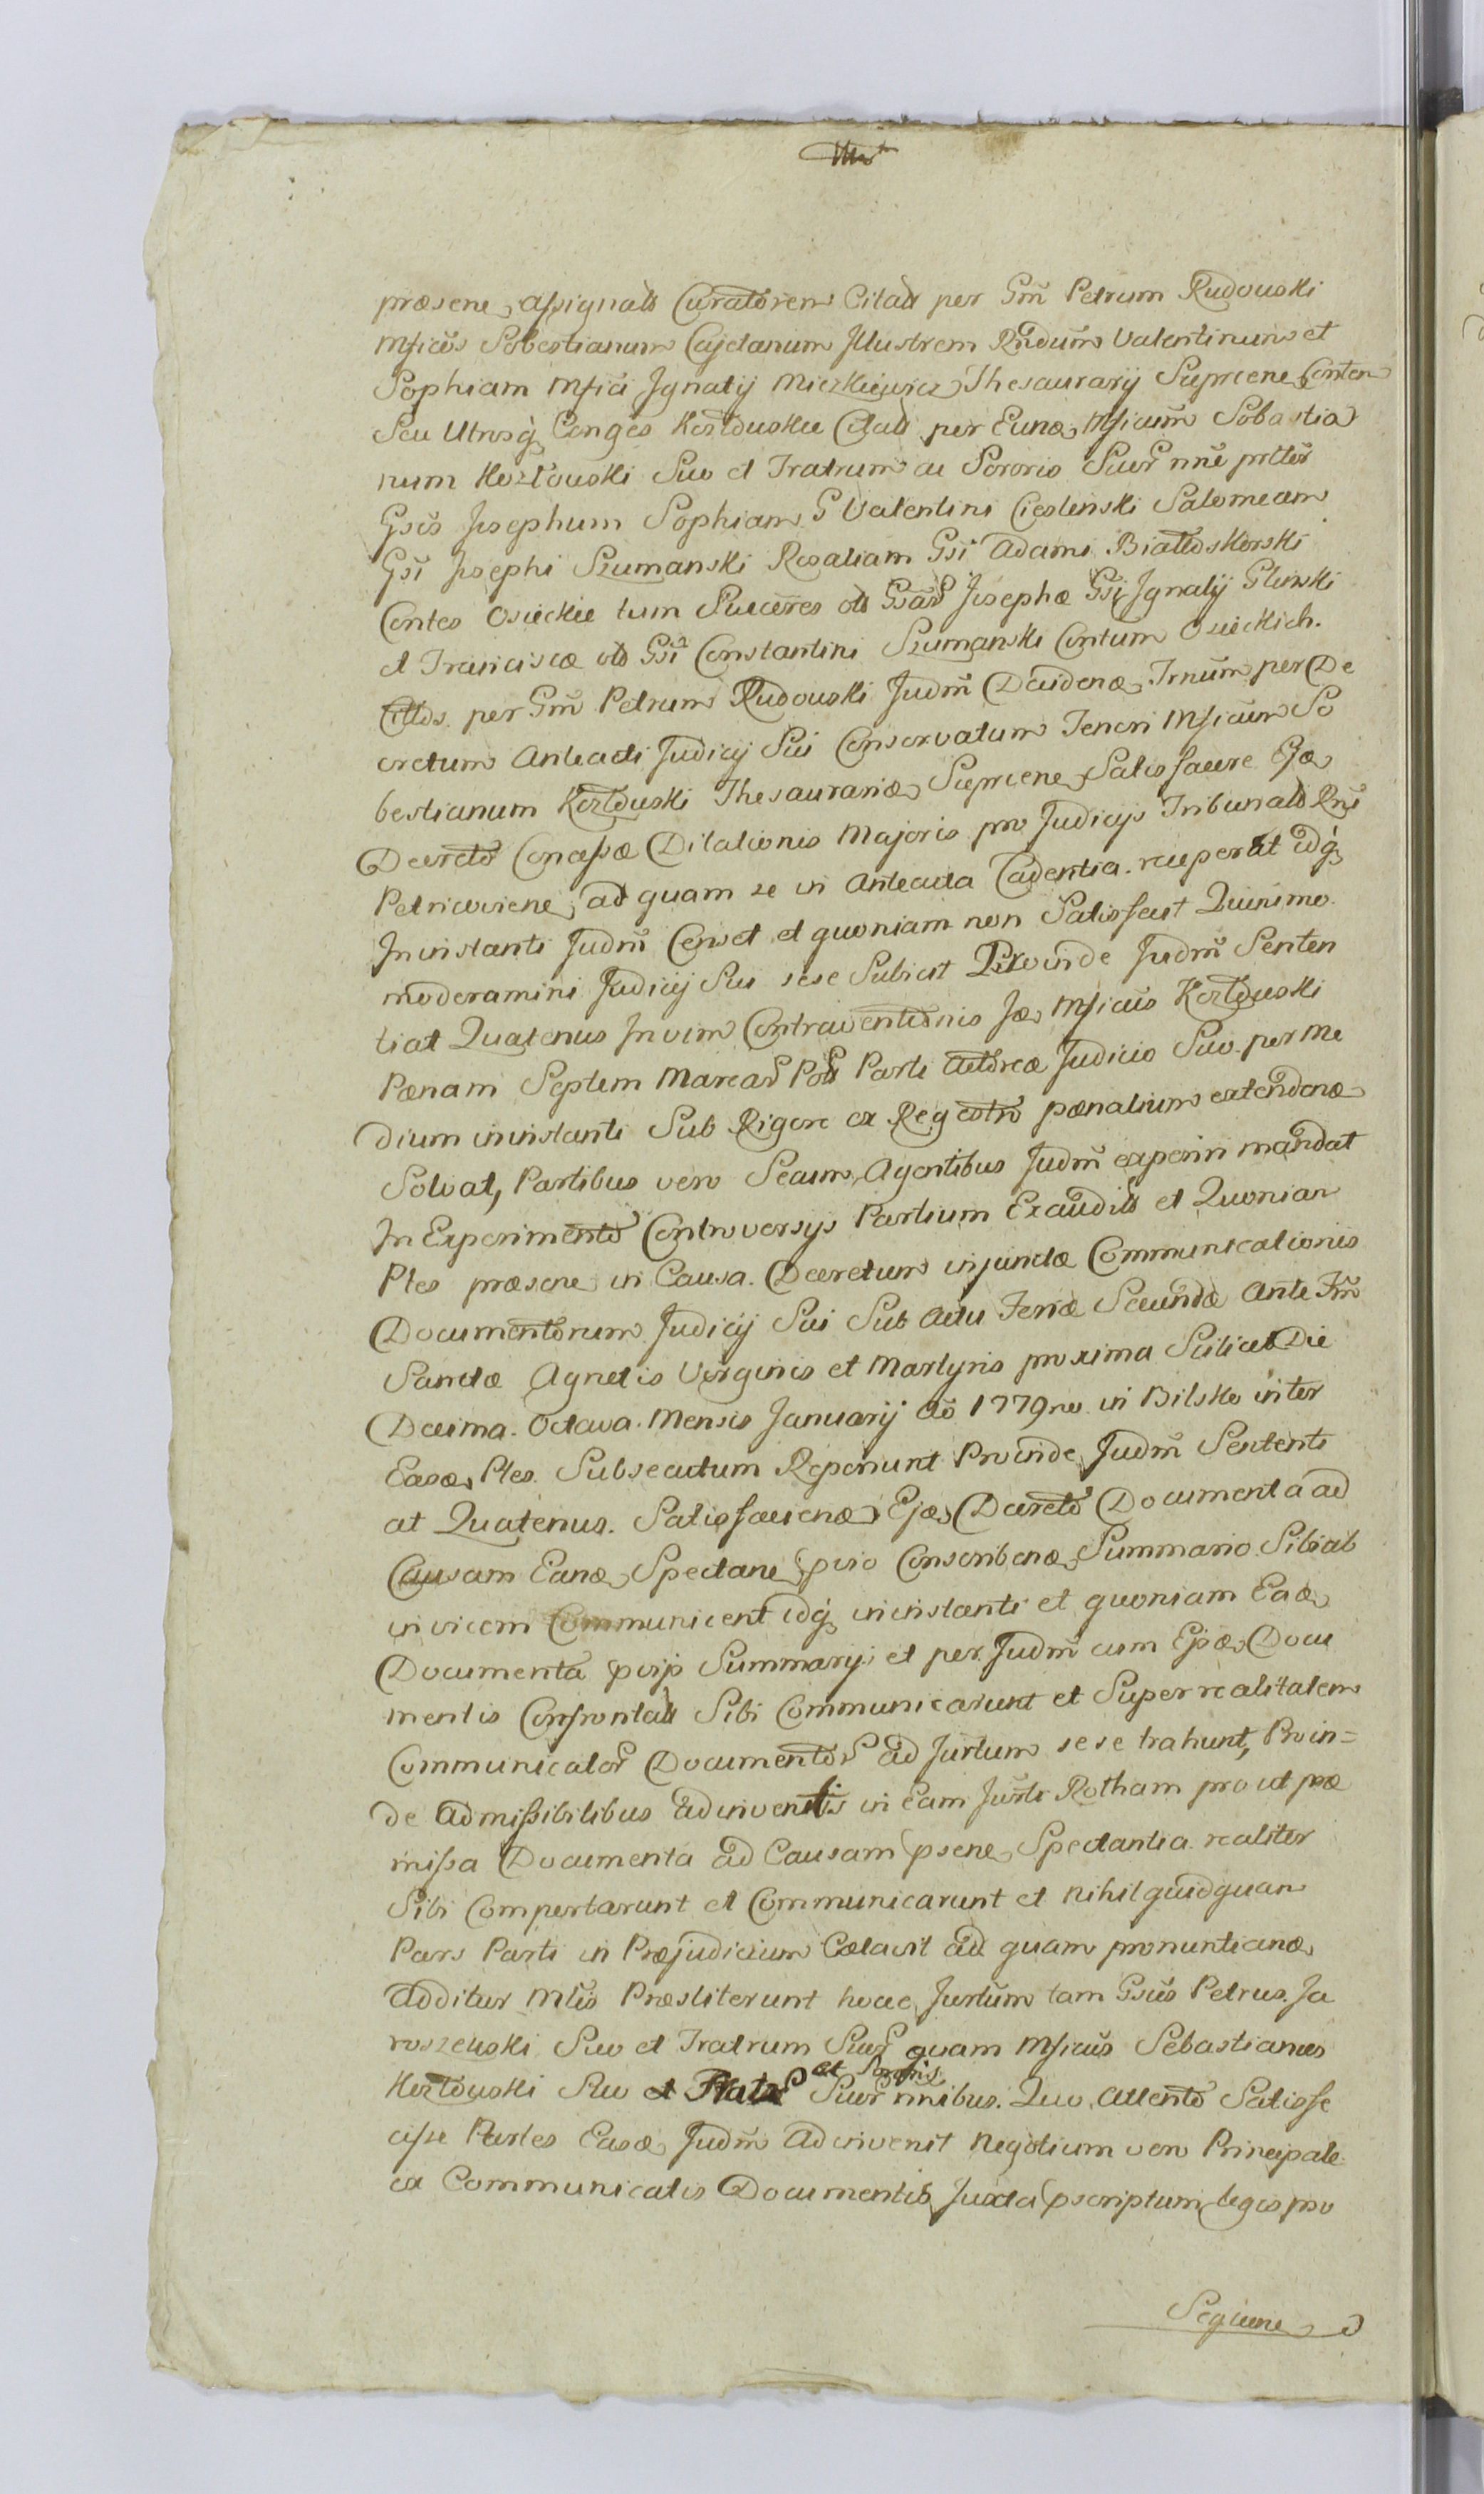 præsene assignatt Curatorem Citatt per Gm̃ Petrum Rudouski
Mficũs Sobestianum Cajetanum Jllustrem Rñdum Valentinum et
Sophiam Mfici Jgnatij Miczkiewicz Thesaurarij Suprcene Conten
Seu Utrosq̃ Conges Kozłouskie Citatt per Eunæ Mficum Sobastia
num Kozłouski Suo et Fratrum ac Sororis Suor nñe prttor
Gsis Josephum Sophiam G Valentini Cieslenski Salomeam
Gsi Josephi Szumanski Rosaliam Gsi Adami Białoskorski
Contes Osieckie tum Succeres ol Gsar Josephæ Gsi Jgnatij Glinski
et Franciscæ ol Gsi Constantini Szumanski Contum Osieckich.
Cittds. per Gm̃ Petrum Rudouski Judm̃ Daidenæ Trnum per De
cretum Anteacti Judicij Sui Conservatum Teneri Mficum So
bestianum Kozłouski Thesaurariæ Suprcene Satisfacere Ejæ
Decreto Concessæ Dilationis Majoris pro Judicijs Tribunals Rñi
Petricoviene, ad quam se in Anteacta Cadentia. recuperat idq̃
Jninstanti Judm̃ Censet et quoniam non Satisfecit Quinimo
moderamini Judicij Sui sese Subicit Proinde Judm̃ Senten
tiat Quatenus Jnvim Contraventionis Jæ Mficũs Kozłouski
Pænam Septem Marcar Pol Parti Actoreæ Judicio Suo per Me
dium ininstanti Sub Rigore ex Regestro pænalium extendenæ
Solvat, Partibus vero Secum Agentibus Judm̃ experiri mandat
Jn Experimento Controversijs Partium Exauditt et Quoniam
Ptes præsene in Causa. Decretum injunctæ Communicationis
Documentorum Judicij Sui Sub Actu Feriæ Secundæ Ante Fm̃
Sanctæ Agnetis Virginis et Martyris proxima Scilicet Die
Decima. Octava. Mensis Januarij Ao 1779no in Bilsko inter
Easæ Ptes. Subsecutum Reperiunt Proinde Judm̃ Sententi
at Quatenus. Satisfacienæ Ejæ Decreto Documenta ad
Causam Eanæ Spectane pvio Conscribenæ Summario Sibiab
invicem Communicent idq̃ ininstanti et quoniam Eaæ
Documenta pvijs Summarijs et per Judm̃ cum Ejsæ Docu
mentis Confrontatt Sibi Communicarunt et Super realitatem
Communicator Documentor ad Jurtum sese trahunt, Proin=
de admissibilibus adinventis in Eam Jurti Rotham prout præ
missa Documenta ad Causam psene Spectantia realiter
Sibi Comportarunt et Communicarunt et nihil quidquam
Pars Parti in Præjudicium Cælavit ad quam pronuntianæ
Additur Mlis Præstiterunt hocce Jurtum tam Gsũs Petrus Ja
roszeuski Suo et Fratrum Suor quam Mficũs Sebastianus
Kozłouski Suo et Fratr et Sororis Suor nñibus. Quo attento Satisfe
cisse Partes Easæ Judm̃ Adinvenit Negotium vero Principale
ex Communicatis Documentis Juxta pscriptum Legis pro
Seqcune